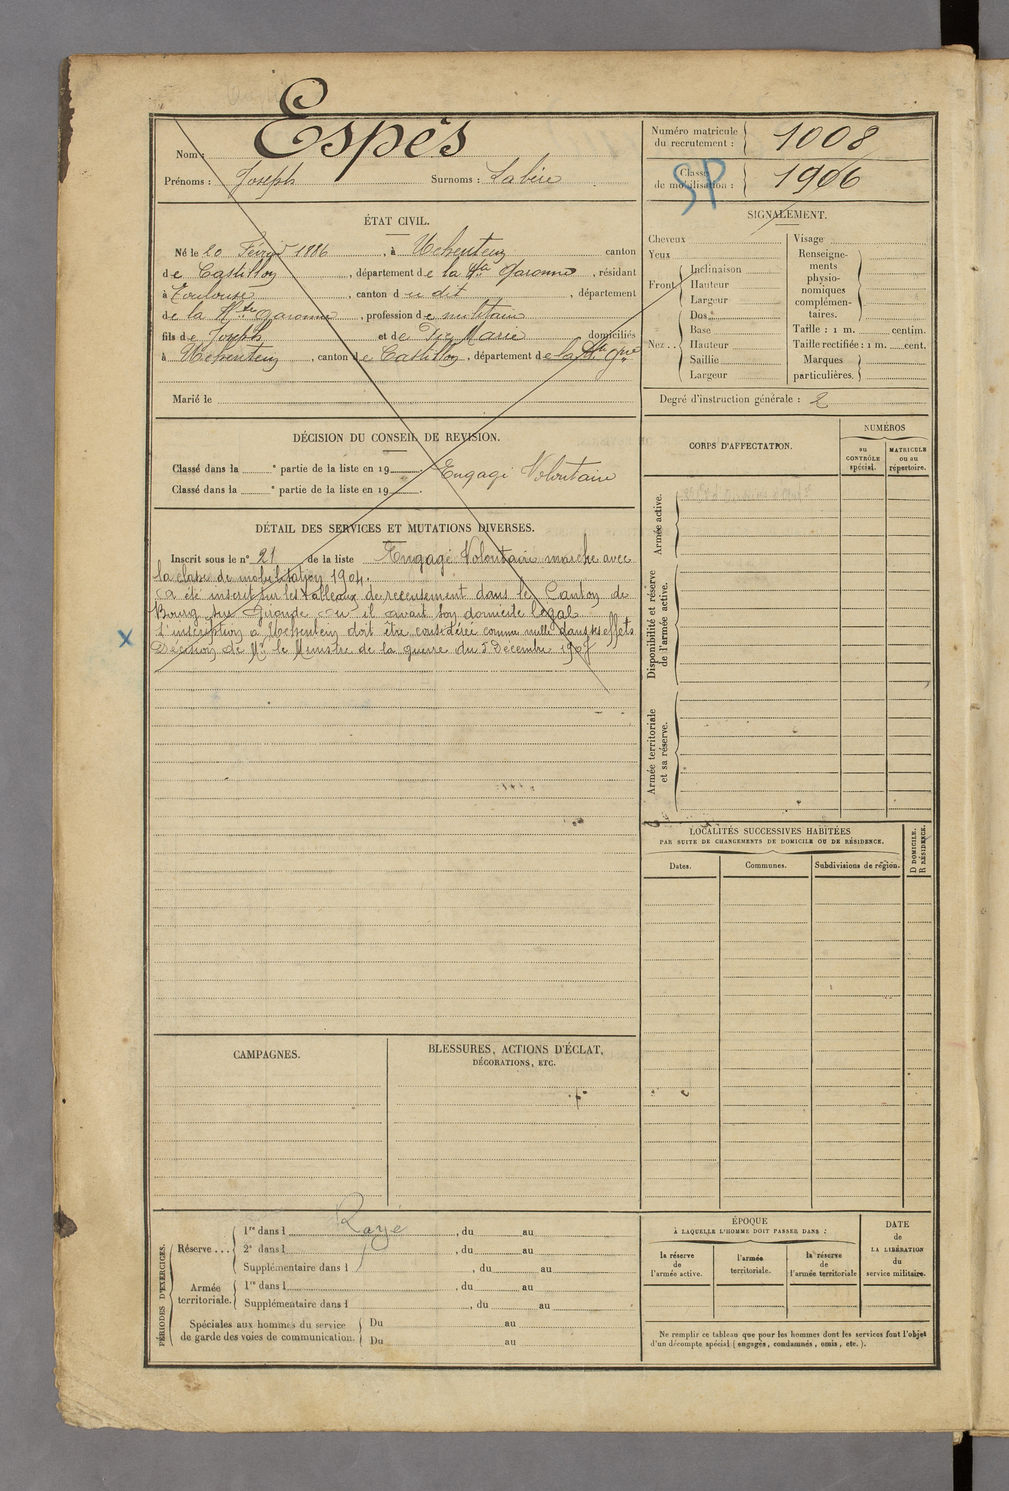 Espés
Nom :
Prénoms : Joseph Surnoms :
Numéro matricule du recrutement : 1008
Classe de mobilisation : 1906
SP
ÉTAT CIVIL.
Né le 20 Février 1886, à Uchentein canton
de Castillon, département de la Hte Garonne, résidant
à Toulouse, canton du dit, département
de la Hte Garonne, profession de militaire
fils de Joseph et de Marie domiciliés
à Uchentein, canton de Castillon, département de la Hte Gne
Marié le
DÉCISION DU CONSEIL DE REVISION.
Classé dans la e partie de la liste en 19
Engagé Volontaire
Classé dans la e partie de la liste en 19 .
DÉTAIL DES SERVICES ET MUTATIONS DIVERSES.
Inscrit sous le n° 21 de la liste Engagé Volontaire marche avec
la classe de mobilisation 1904.
a été inscrit sur les tableaux de recensement dans le Canton de
Bourg sur Gironde où il avait son domicile légal
L'inscription à Uchentein doit être considérée comme nulle dans ses effets
X
Décision de Mr le Ministre de la guerre du 5 Décembre 1907
SIGNALEMENT.
Cheveux
Yeux
Front
Inclinaison
Hauteur
Largeur
Nez
Dos
Base
Hauteur
Saillie
Largeur
Visage
Renseignements physionomiques complémentaires.
Taille : 1 m. centim.
Taille rectifiée : 1 m. cent.
Marques particulières.
Degré d'instruction générale : 2
CORPS D'AFFECTATION.
NUMÉROS
au CONTRÔLE spécial.
MATRICULE ou au répertoire.
Armée active.
Disponibilité et réserve de l'armée active.
Armée territoriale et sa réserve.
LOCALITÉS SUCCESSIVES HABITÉES
PAR SUITE DE CHANGEMENTS DE DOMICILE OU DE RÉSIDENCE.
D DOMICILE.
R RÉSIDENCE.
Dates. Communes. Subdivisions de région.
CAMPAGNES.
BLESSURES, ACTIONS D'ÉCLAT,
DÉCORATIONS, ETC.
PÉRIODES D'EXERCICES.
Réserve ...
1re dans l Rayé, du au
2e dans l , du au
Supplémentaire dans l , du au
Armée territoriale.
1re dans l , du au
Supplémentaire dans l , du au
Spéciales aux hommes du service
de garde des voies de communication.
Du au
Du au
ÉPOQUE
À LAQUELLE L'HOMME DOIT PASSER DANS :
la réserve de l'armée active.
l'armée territoriale.
la réserve de l'armée territoriale
DATE
de
LA LIBÉRATION
du
service militaire.
Ne remplir ce tableau que pour les hommes dont les services font l'objet
d'un décompte spécial (engagés, condamnés, omis, etc.).